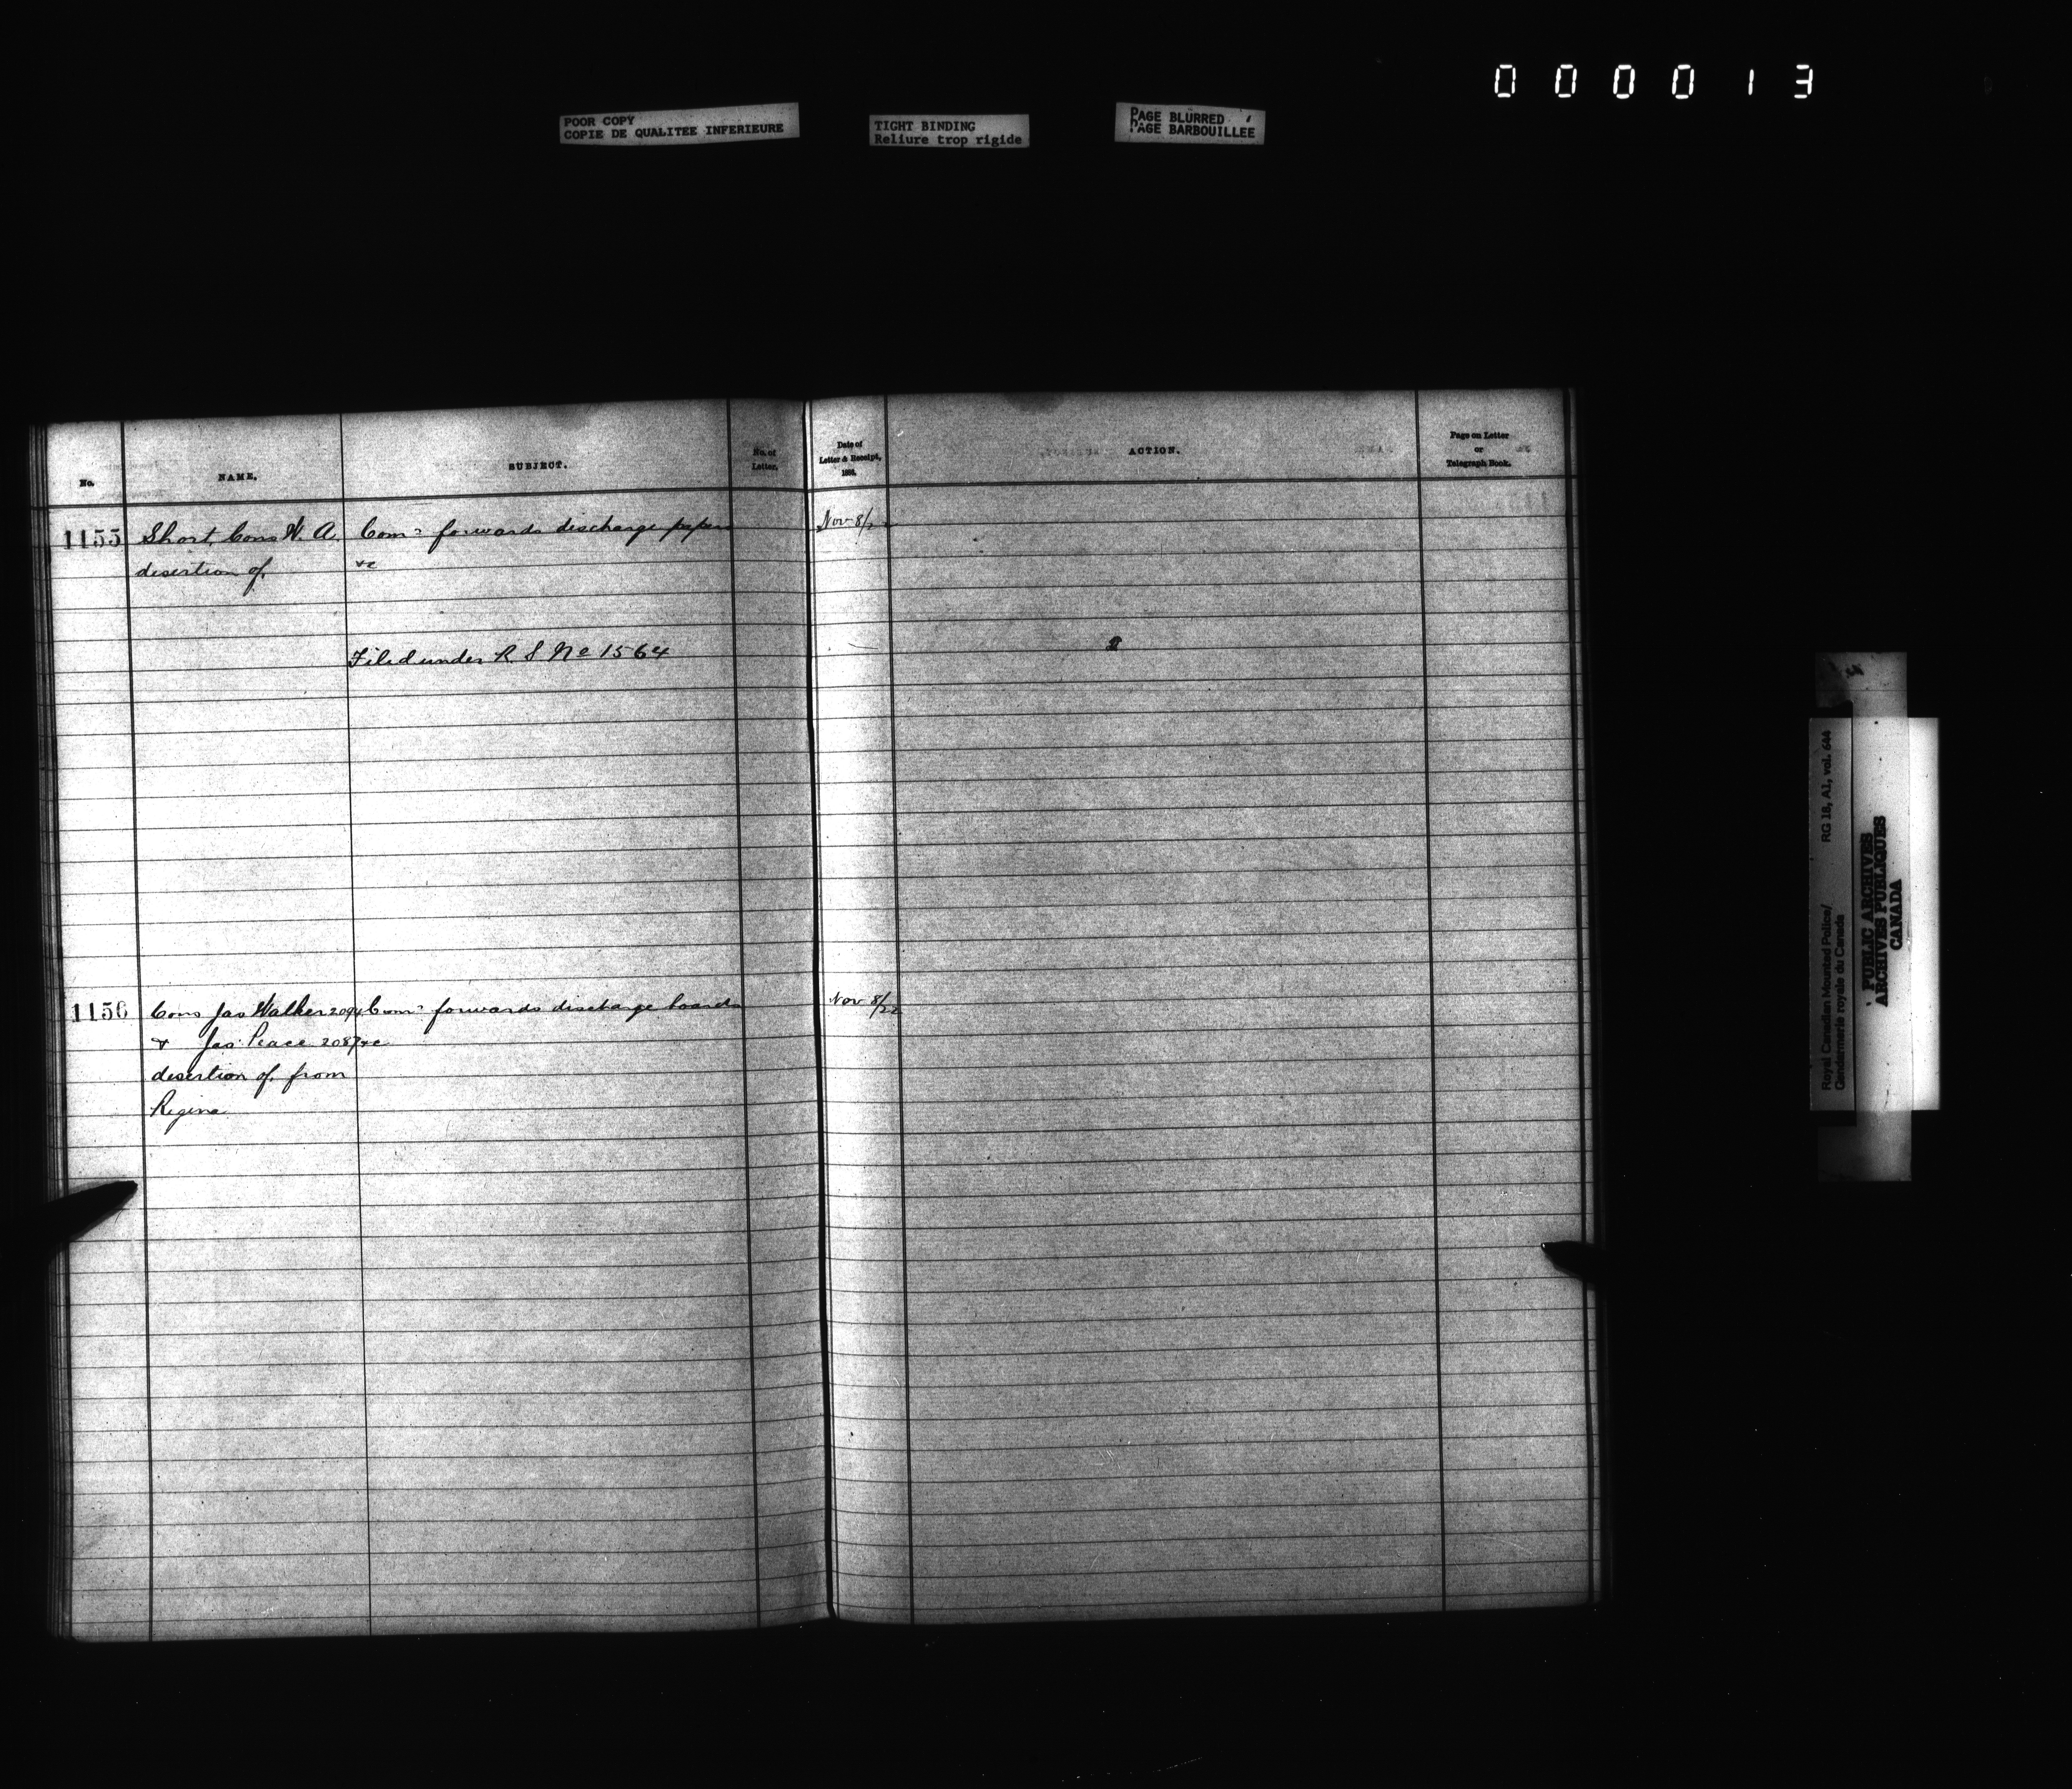 000013
POOR COPY
COPIE DE QUALITEE INFERIEURE
TIGHT BINDING
Reliure trop rigide
PAGE BLURRED
PAGE BARBOUILLEE
No.
NAME.
SUBJECT.
No. of
Letter.
Date of
Letter & Receipt,
ACTION.
Page on Letter
or
Telegraph Book.
1155
Short, Cons W. A.
desertion of,
Comr forwards discharge papers
&c
Nov 8/22
Filed under R S No 1564
1156
Cons Jas Walker 2094
& Jas Peace 2087
desertion of, from
Regina
Comr forwards discharge boards
&c
Nov 8/22
Royal Canadian Mounted Police/
Gendarmerie royale du Canada
RG 18, A1, vol. 644
PUBLIC ARCHIVES
ARCHIVES PUBLIQUES
CANADA